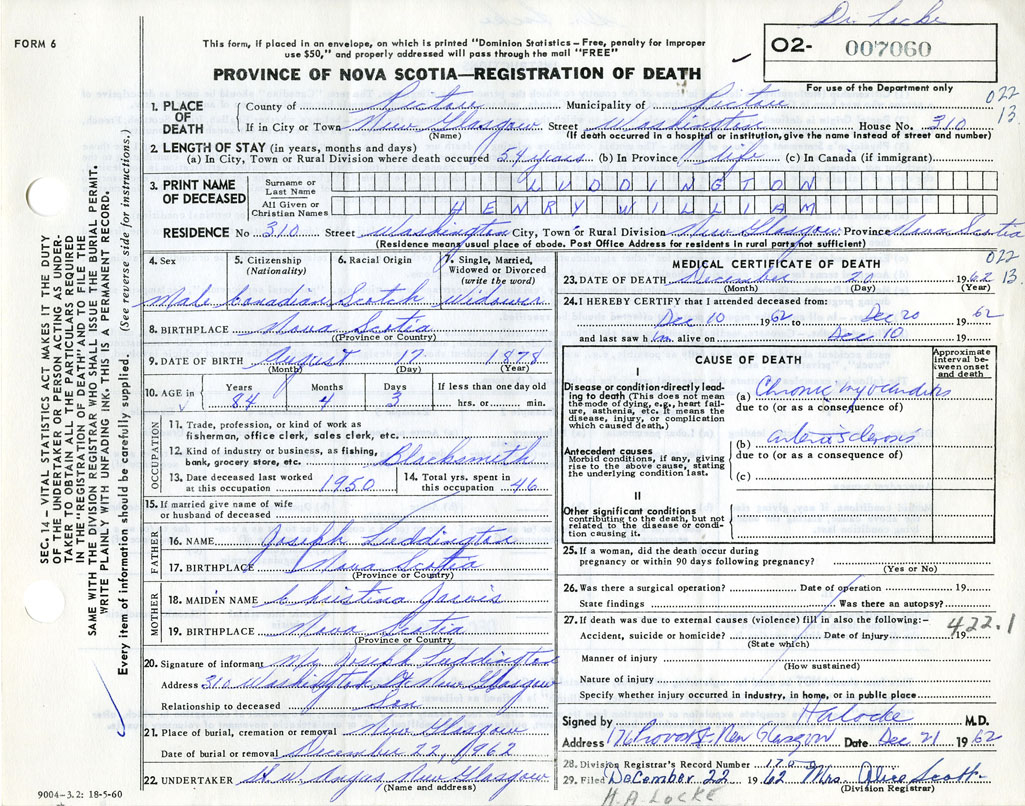 Dr. Locke
FORM 6
This form, if placed in an envelope, on which is printed "Dominion Statistics – Free, penalty for improper
use $50," and properly addressed will pass through the mail "FREE"
O2- 007060
For use of the Department only
PROVINCE OF NOVA SCOTIA—REGISTRATION OF DEATH
022
13.
1. PLACE OF DEATH
County of Pictou Municipality of Pictou
If in City or Town New Glasgow Street Washington House No. 310
(Name) (If death occurred in a hospital or institution, give the name instead of street and number)
2. LENGTH OF STAY (in years, months and days)
(a) In City, Town or Rural Division where death occurred 54 years (b) In Province life (c) In Canada (if immigrant)
3. PRINT NAME OF DECEASED
Surname or Last Name LUDDINGTON
All Given or Christian Names HENRY WILLIAM
RESIDENCE No 310 Street Washington City, Town or Rural Division New Glasgow Province Nova Scotia
(Residence means usual place of abode. Post Office Address for residents in rural parts not sufficient)
SEC. 14 – VITAL STATISTICS ACT MAKES IT THE DUTY
OF THE UNDERTAKER OR PERSON ACTING AS UNDER-
TAKER TO OBTAIN ALL THE PARTICULARS REQUIRED
IN THE "REGISTRATION OF DEATH" AND TO FILE THE
SAME WITH THE DIVISION REGISTRAR WHO SHALL ISSUE THE BURIAL PERMIT.
WRITE PLAINLY WITH UNFADING INK. THIS IS A PERMANENT RECORD.
Every item of information should be carefully supplied. (See reverse side for instructions.)
4. Sex
5. Citizenship (Nationality)
6. Racial Origin
7. Single, Married, Widowed or Divorced (write the word)
Male Canadian Scotch Widower
8. BIRTHPLACE Nova Scotia
(Province or Country)
9. DATE OF BIRTH August 17 1878
(Month) (Day) (Year)
10. AGE in Years Months Days If less than one day old
84 4 3 hrs. or min.
OCCUPATION
11. Trade, profession, or kind of work as
fisherman, office clerk, sales clerk, etc.
12. Kind of industry or business, as fishing,
bank, grocery store, etc. Blacksmith
13. Date deceased last worked at this occupation 1950
14. Total yrs. spent in this occupation 46
15. If married give name of wife
or husband of deceased
FATHER
16. NAME Joseph Luddington
17. BIRTHPLACE Nova Scotia
(Province or Country)
MOTHER
18. MAIDEN NAME Christina Jarvis
19. BIRTHPLACE Nova Scotia
(Province or Country)
20. Signature of informant Mr Joseph Luddington
Address 310 Washington St New Glasgow
Relationship to deceased Son
21. Place of burial, cremation or removal New Glasgow
Date of burial or removal December 22, 1962
22. UNDERTAKER H.W. Angus, New Glasgow
(Name and address)
9004-3.2: 18-5-60
MEDICAL CERTIFICATE OF DEATH
022
13.
23. DATE OF DEATH December 20 1962
(Month) (Day) (Year)
24. I HEREBY CERTIFY that I attended deceased from:
Dec 10 1962 to Dec 20 1962
and last saw him alive on Dec 10 19
CAUSE OF DEATH
Approximate interval between onset and death
I
Disease or condition directly lead-
ing to death (This does not mean
the mode of dying, e.g., heart fail-
ure, asthenia, etc. It means the
disease, injury, or complication
which caused death.)
(a) Chronic myocarditis
due to (or as a consequence of)
Antecedent causes
Morbid conditions, if any, giving
rise to the above cause, stating
the underlying condition last.
(b) arteriosclerosis
due to (or as a consequence of)
(c)
II
Other significant conditions
contributing to the death, but not
related to the disease or condi-
tion causing it.
25. If a woman, did the death occur during
pregnancy or within 90 days following pregnancy?
(Yes or No)
26. Was there a surgical operation? Date of operation 19
State findings Was there an autopsy?
27. If death was due to external causes (violence) fill in also the following:-
422.1
Accident, suicide or homicide? Date of injury 19
(State which)
Manner of injury
(How sustained)
Nature of injury
Specify whether injury occurred in industry, in home, or in public place
Signed by HALocke M.D.
Address 176 Provost St New Glasgow Date Dec 21 1962
28. Division Registrar's Record Number 170
29. Filed December 22 1962 Mrs Alice Scott
(Division Registrar)
H.A. LOCKE